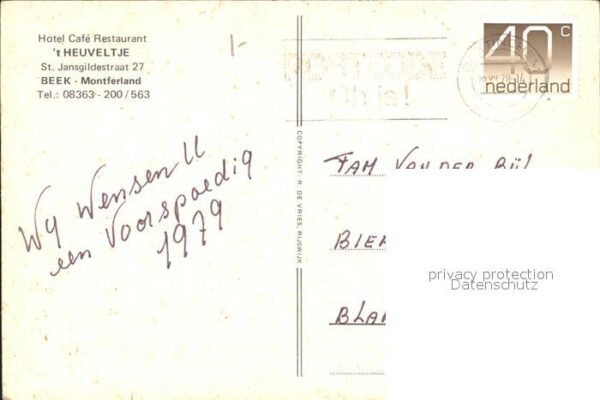 Hotel Café Restaurant
't HEUVELTJE
St. Jansgildestraat 27
BEEK - Montferland
Tel.: 08363 - 200/563
1-
POSTCODE
Oh ja!
40 c
nederland
COPYRIGHT: R. DE VRIES, RIJSWIJK
Wy Wensen U
een Voorspoedig
1979
FAM VAN DER
privacy protection
Datenschutz